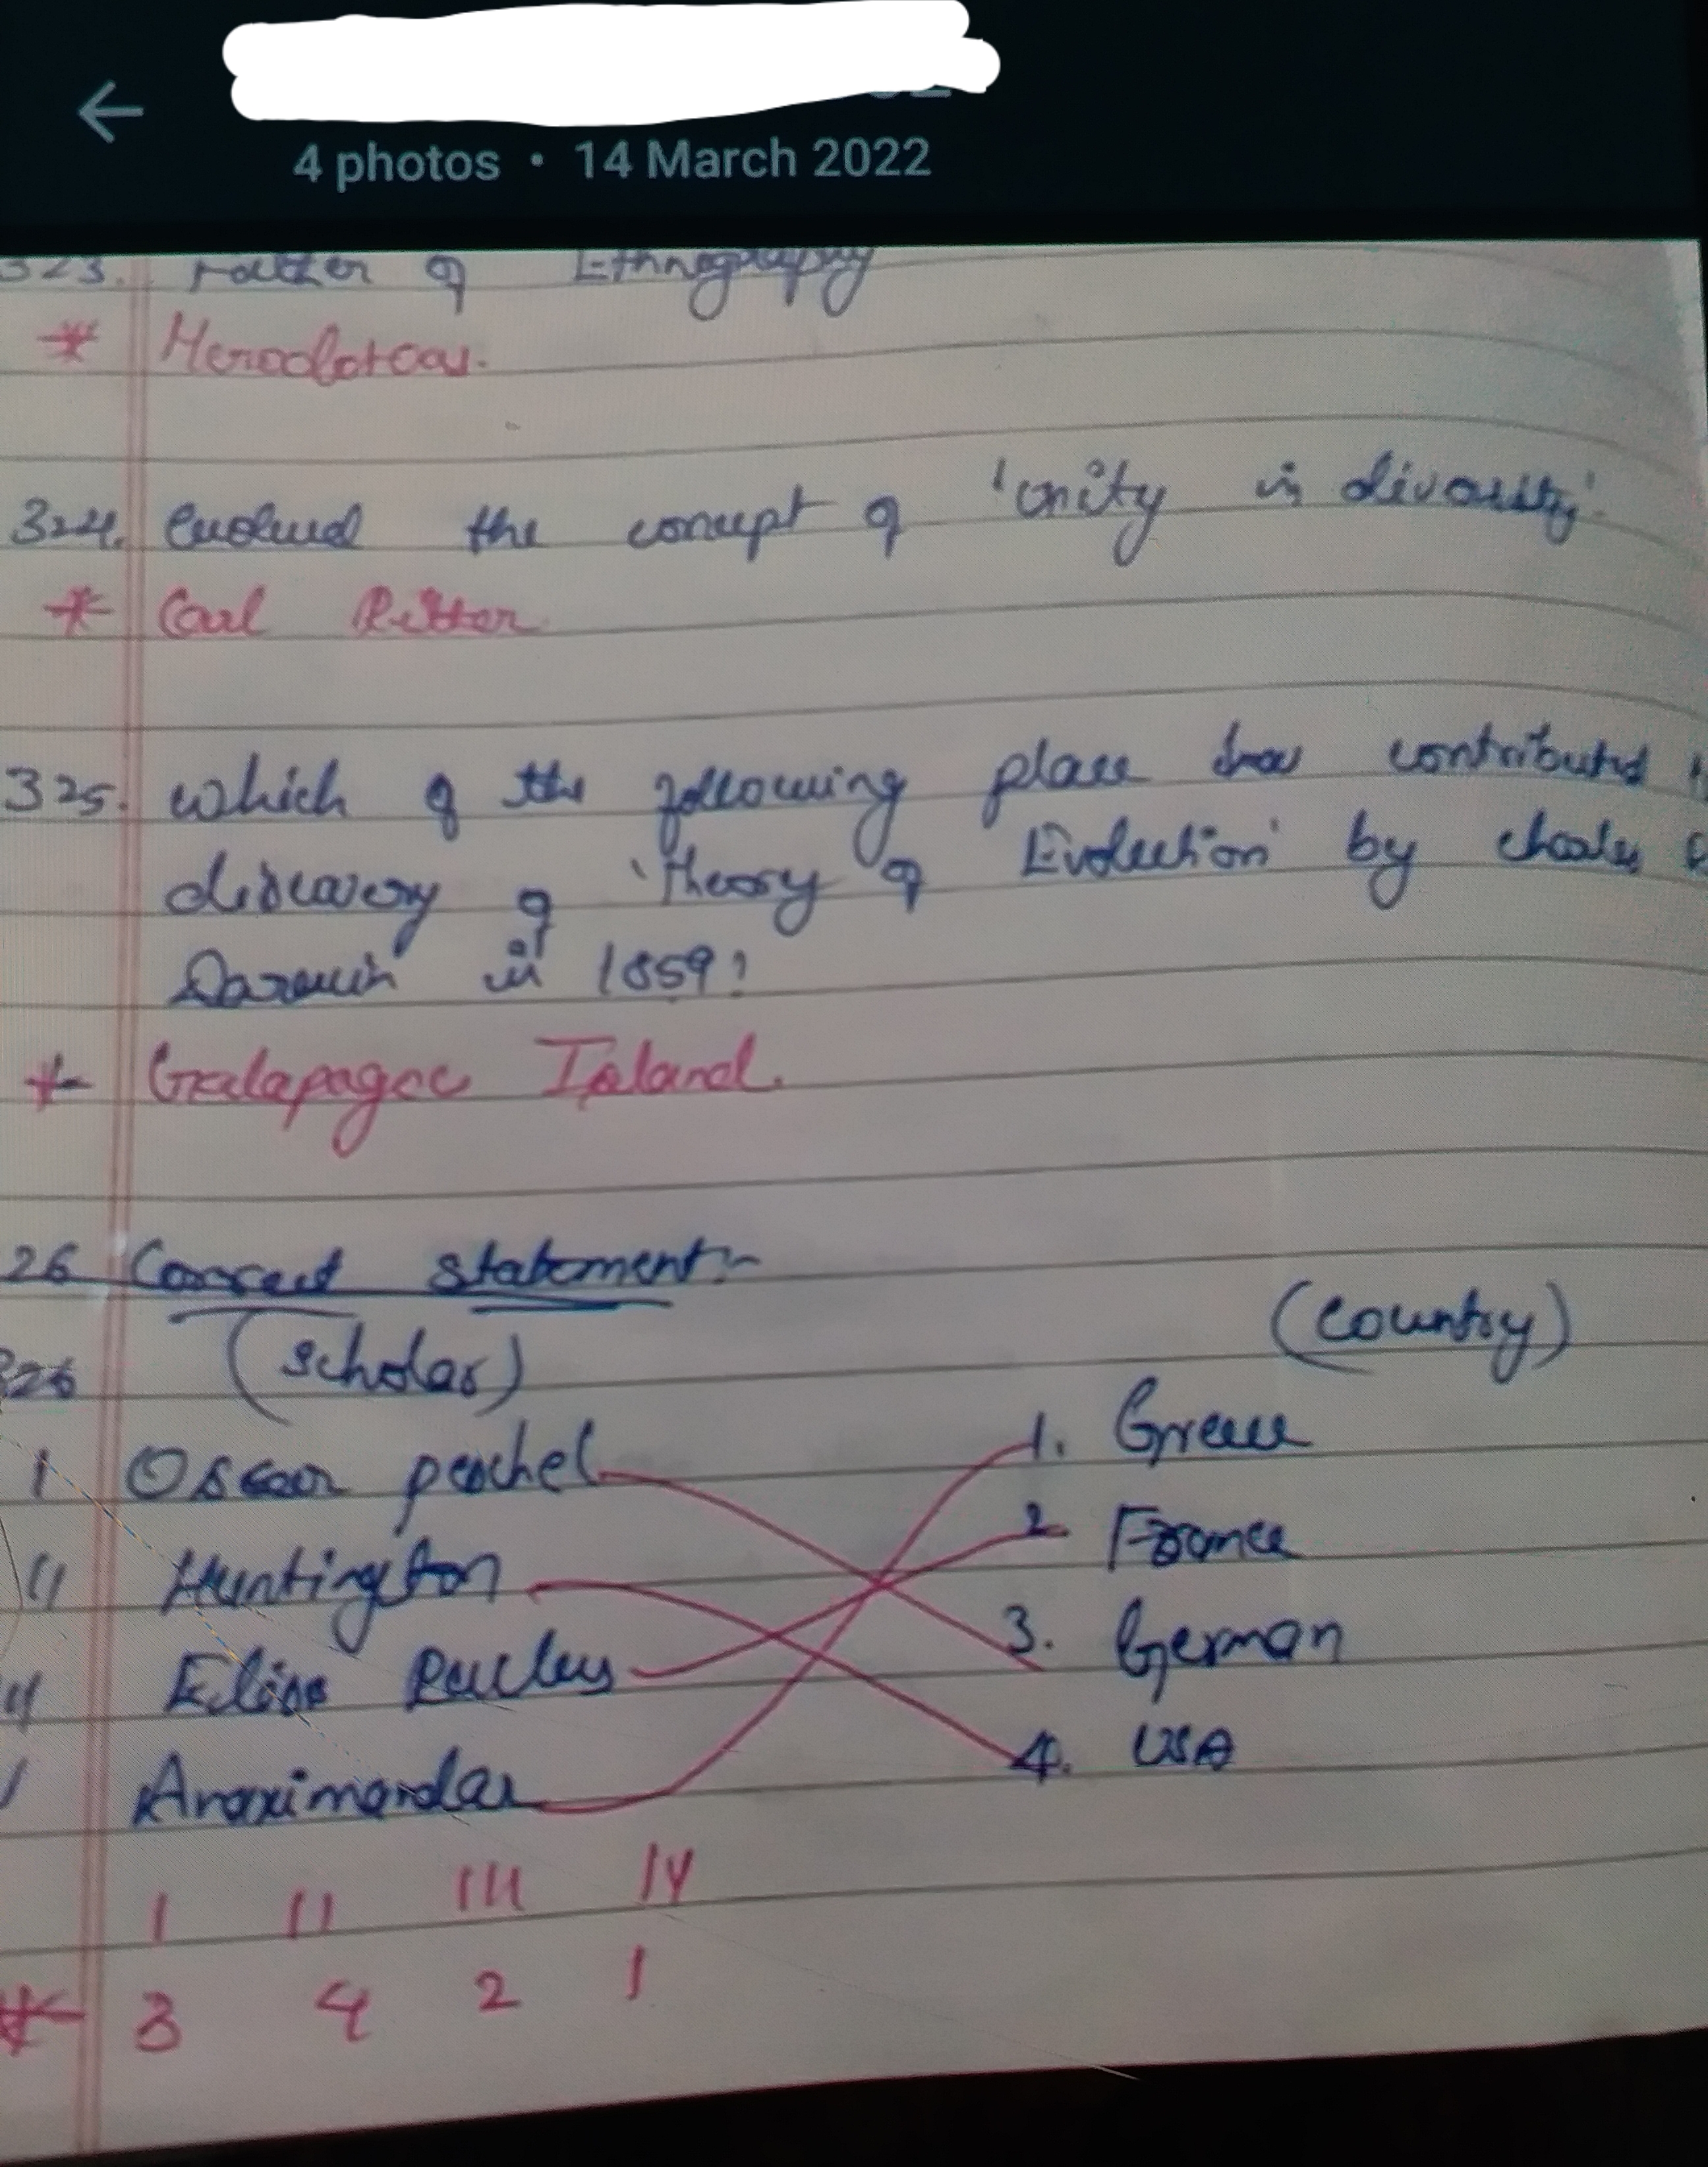 4 photos • 14 March 2022
323. Father of Ethnography
* Herodoteas.
324. Evolved the concept of 'unity in diversity'
* Carl Ritter
325. which of the following place has contributed
discovery of 'Theory of Evolution' by charles
Darwin in 1859?
* Galapagoc Island.
26 Correct statement:-
(scholar) (country)
326
I Oscar peschel 1. Greece
II Huntington 2 France
Elise Reclus 3. German
Anaximander 4. USA
I II III IV
* 3 4 2 1